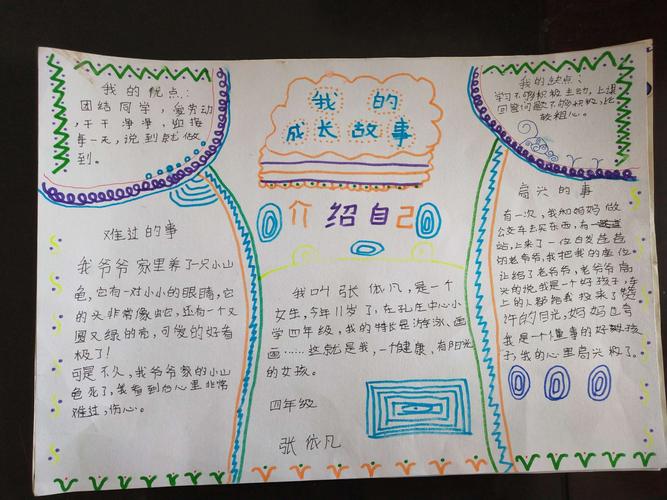 我的优点：
团结同学，爱劳动
，干干净净，迎接
每一天，说到就做
到。
我的
成长故事
介绍自己
我的缺点：
学习不够积极主动，上课
回答问题不够积极，比
较粗心。
难过的事
我爷爷家里养了一只小山
龟，它有一对小小的眼睛，它
的头非常像蛇，还有一个又
圆又绿的壳，可爱的好看
极了！
可是不久，我爷爷家的小山
龟死了，我看到后心里非常
难过，伤心。
我叫张依凡，是一个
女生，今年11岁了，在孔庄中心小
学四年级，我的特长是游泳、画
画……这就是我，一个健康，有阳光
的女孩。
四年级
张依凡
高兴的事
有一次，我和妈妈做
公交车去买东西，有一
站，上来了一位白发苍苍
的老爷爷，我把我的座位
让给了老爷爷，老爷爷高
兴的说，我是一个好孩子，车
上的人都给我投来了赞
许的目光，妈妈也夸
我是一个懂事的好孩
子，我的心里高兴极了。